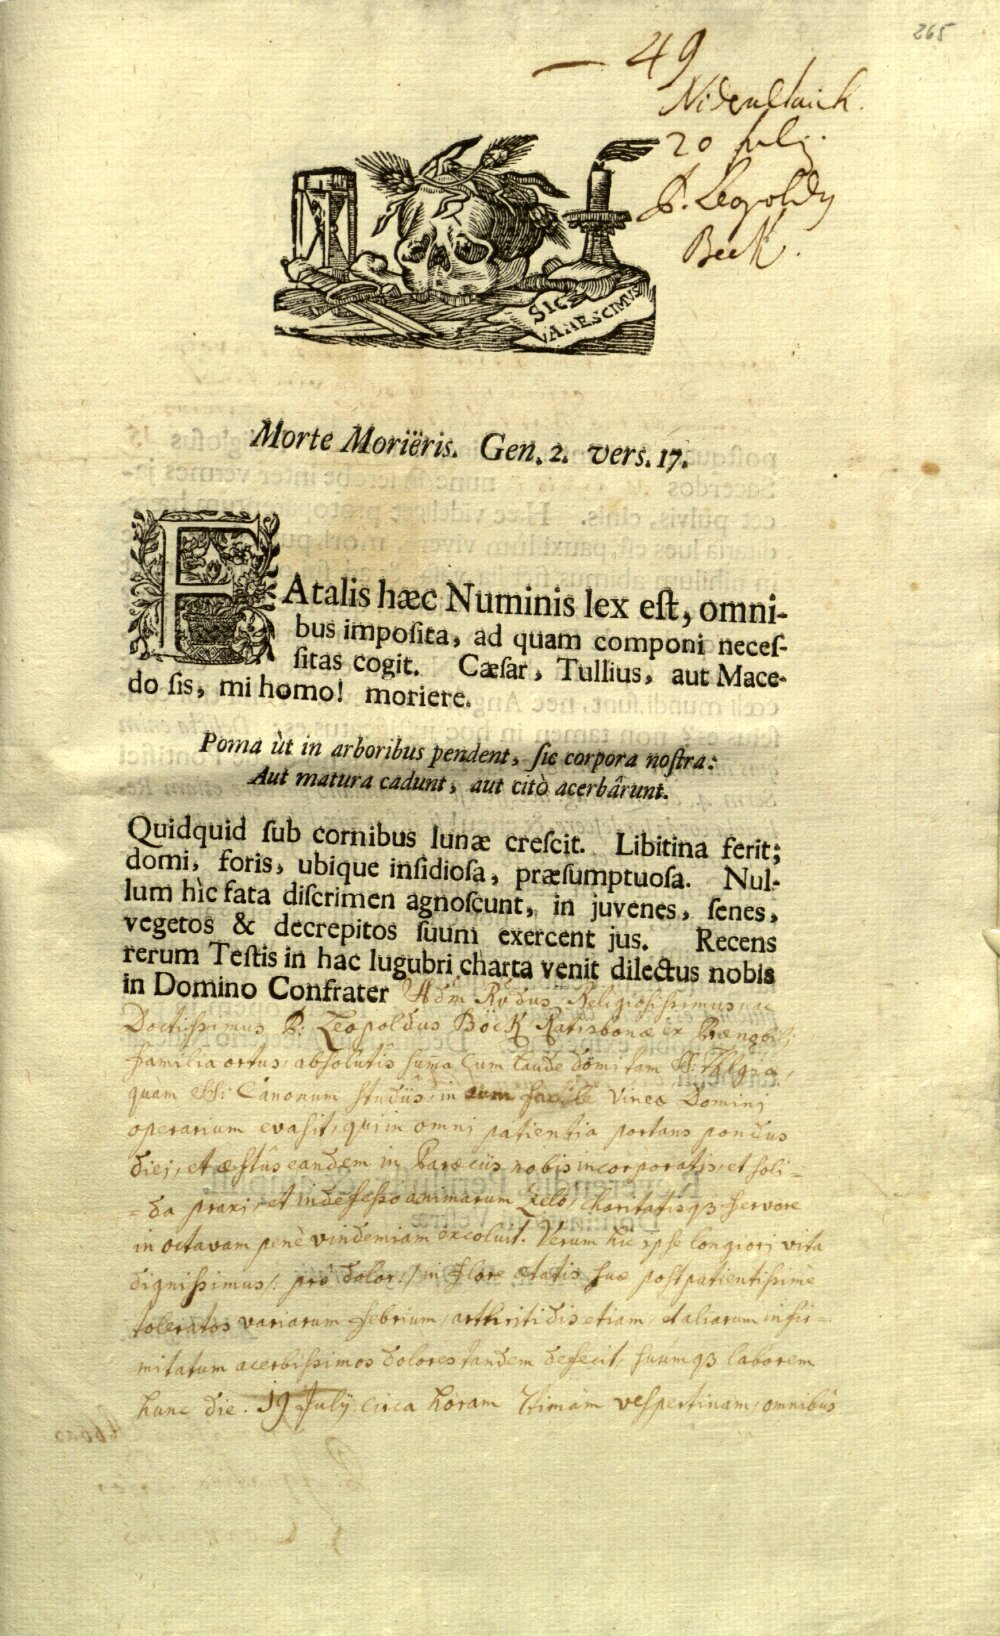 265
— 49
Nideraltaich.
20 Julij.
P. Leopoldy
Beck.
SIC
VANESCIMUS
Morte Moriëris. Gen. 2. vers. 17.
FAtalis hæc Numinis lex eſt, omni-
bus impoſita, ad quam componi neceſ-
ſitas cogit. Cæſar, Tullius, aut Mace-
do ſis, mi homo! moriere.
Poma ùt in arboribus pendent, ſic corpora noſtra:
Aut matura cadunt, aut citò acerbârunt.
Quidquid ſub cornibus lunæ creſcit. Libitina ferit;
domi, foris, ubique inſidioſa, præſumptuoſa. Nul-
lum hìc fata diſcrimen agnoſcunt, in juvenes, ſenes,
vegetos & decrepitos ſuum exercent jus. Recens
rerum Teſtis in hac lugubri charta venit dilectus nobis
in Domino Confrater Adm Rdus, Religiosissimus, ac
Doctissimus P: Leopoldus Böck Ratisbonæ ex
familia ortus, absolutis suma cum laude domi tam SS: Thlgia,
quàm SS: Canonum studiis, in Vineæ Domini
operarium evasit, qui in omni patientia portans pondus
diei, et æstûs eandem in Paroeciis nobis incorporatis, et soli-
=da praxi, et indefesso animarum zelo, charitatisq3 fervore
in octavam penè vindemiam excoluit. Verum hic ipse longiori vita
dignissimus /: prô dolor :/ in flore ætatis suæ post patientissimè
toleratos variarum febrium, arthritidis etiam, et aliarum infir=
mitatum acerbissimos dolores tandem defecit, suumq3 laborem
hunc die. 19 Julij circa horam 7timam vespertinam, omnibus